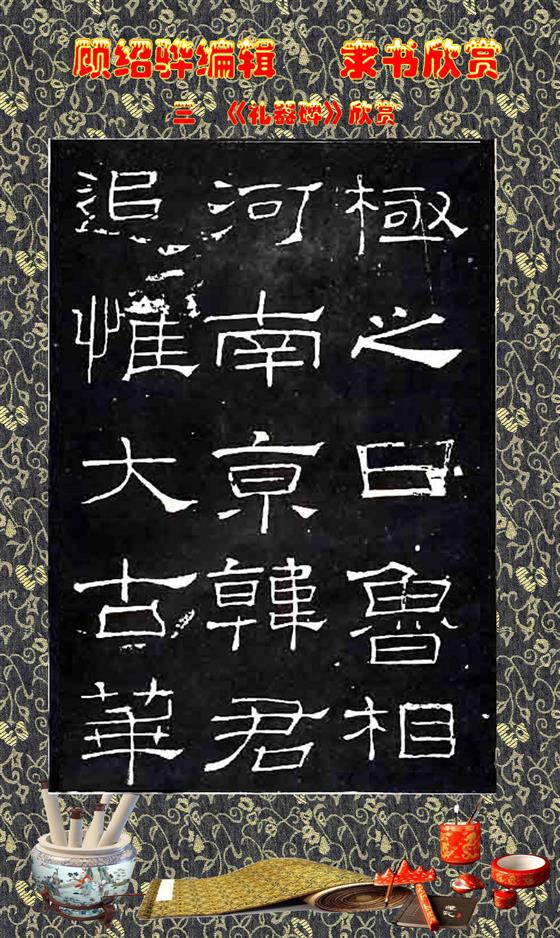 顾绍骅编辑 隶书欣赏
三 《礼器碑》欣赏
極之日魯相
河南京韓君
追惟大古華